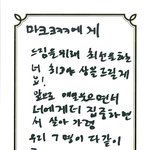 마크ㅋㅋㅋ에게
드림을 위해 최선을 하는
너 최고야 상을 드릴게
요!
앞으로 애들 보면서
너에게 더 집중하면
서 살아가렴
우리 7명이 다같이